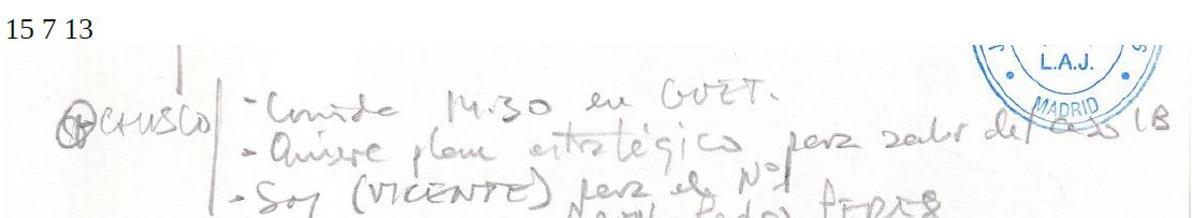 15 7 13
L.A.J.
MADRID
CHUSCO - Comida 14.30 en
- Quiere plan estratégico para salir del caso LB
- Soy (VICENTE) para el Nº1